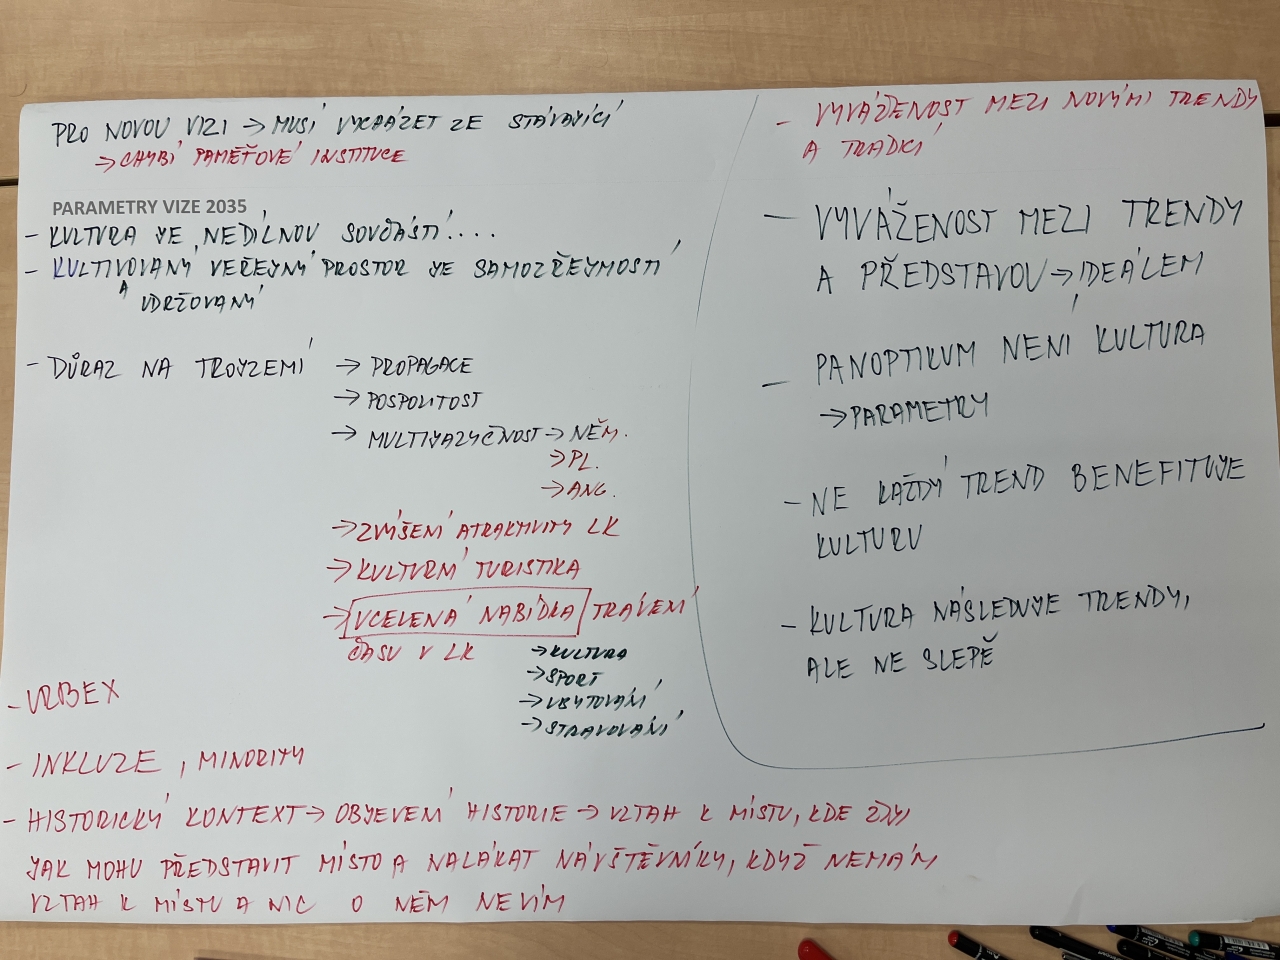 PRO NOVOU VIZI → MUSÍ VYCHÁZET ZE STÁVAJÍCÍ
→ CHYBÍ PAMĚŤOVÉ INSTITUCE
PARAMETRY VIZE 2035
- KULTURA JE NEDÍLNOU SOUČÁSTÍ....
- KULTIVOVANÝ VEŘEJNÝ PROSTOR JE SAMOZŘEJMOSTÍ
A UDRŽOVANÝ
- DŮRAZ NA TROJZEMÍ → PROPAGACE
→ POSPOLITOST
→ MULTIJAZYČNOST → NĚM.
→ PL.
→ ANG.
→ ZVÝŠENÍ ATRAKTIVITY LK
→ KULTURNÍ TURISTIKA
→ UCELENÁ NABÍDKA TRÁVENÍ
ČASU V LK → KULTURA
→ SPORT
→ UBYTOVÁNÍ
→ STRAVOVÁNÍ
- URBEX
- INKLUZE, MINORITY
- HISTORICKÝ KONTEXT → OBJEVENÍ HISTORIE → VZTAH K MÍSTU, KDE ŽIJI
JAK MOHU PŘEDSTAVIT MÍSTO A NALÁKAT NÁVŠTĚVNÍKY, KDYŽ NEMÁM
VZTAH K MÍSTU A NIC O NĚM NEVÍM
- VYVÁŽENOST MEZI NOVÝMI TRENDY
A TRADICÍ
- VYVÁŽENOST MEZI TRENDY
A PŘEDSTAVOU → IDEÁLEM
- PANOPTIKUM NENÍ KULTURA
→ PARAMETRY
- NE KAŽDÝ TREND BENEFITUJE
KULTURU
- KULTURA NÁSLEDUJE TRENDY,
ALE NE SLEPĚ